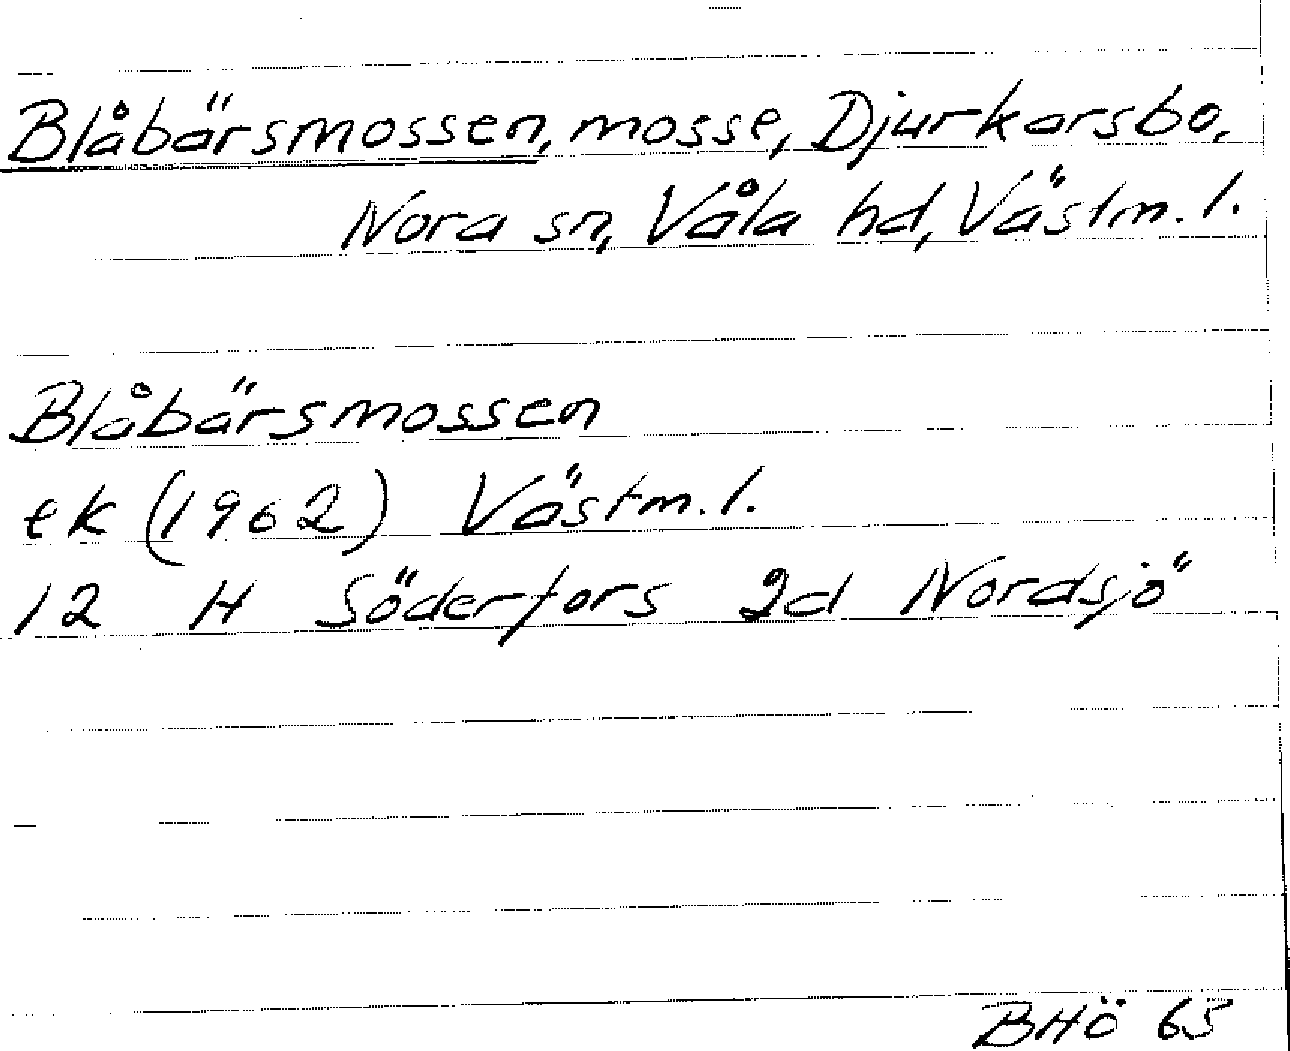 Blåbärsmossen, mosse, Djurkarsbo,
Nora sn, Våla hd, Västm. l.
Blåbärsmossen
ek (1962) Västm. l.
12 H Söderfors 2d Nordsjö
BHÖ 65